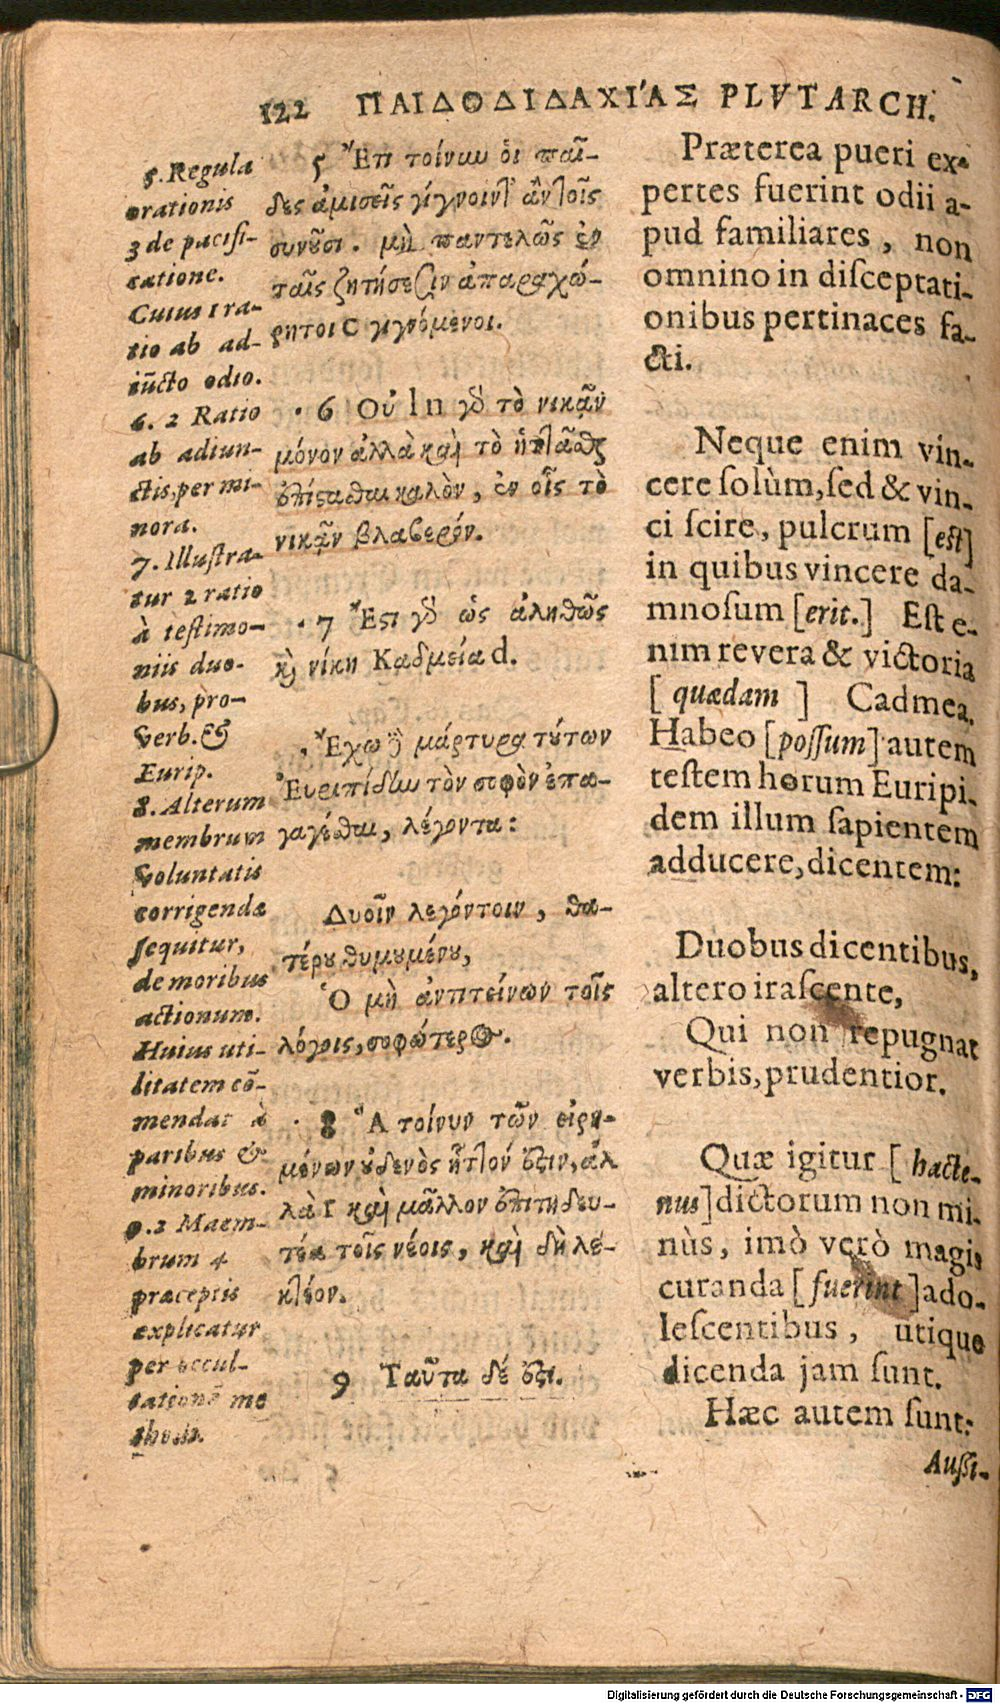 122 ΠΑΙΔΟΔΙΔΑΧΙΆΣ PLVTARCH.
5. Regula
orationis
3 de pacifi-
catione.
Cuius 1 ra-
tio ab ad-
iūcto odio.
6. 2 Ratio
ab adiun-
ctis, per mi-
nora.
7. Illustra-
tur 2 ratio
à testimo-
niis duo-
bus, pro-
verb. &
Eurip.
8. Alterum
membrum
voluntatis
corrigendæ
sequitur,
de moribus
actionum.
Huius uti-
litatem cō-
mendat à
paribus &
minoribus.
9. 2 Maem-
brum 4
præceptis
explicatur
per occul-
tationē me
5 Ἔτι τοίνυν ὁι παῖ-
δες ἀμισεῖς γίγνοιντ' ἂν τοῖς
συνοῦσι. μὴ παντελῶς ἐν
ταῖς ζητήσεσιν ἀπαραχώ-
ρητοι C γιγνόμενοι.
6 Οὐ 1 η γὸ τὸ νικᾷν
μόνον ἀλλὰ καὶ τὸ ἡττᾶσθς
ἐπίστασθαι καλὸν, ἐν οἷς τὸ
νικᾷν βλαβερόν.
7 Ἔστι γὸ ὡς ἀληθῶς
κὶ νίκη Καδμεία d.
Ἔχω ἢ μάρτυρα τούτων
Ἐυριπίδην τὸν σοφὸν ἐπα-
γαγέσθαι, λέγοντα:
Δυοῖν λεγόντοιν, θα-
τέρου θυμουμένου,
Ὁ μὴ ἀντιτείνων τοῖς
λόγοις, σοφώτερος.
8 Ἃ τοίνυν τῶν εἰρη-
μένων οὐδενὸς ἧττόν ἐστιν, ἀλ
λὰ f καὶ μᾶλλον ἐπιτηδευ-
τέα τοῖς νέοις, καὶ δὴ λε-
κτέον.
9 Ταῦτα δέ ἐστι.
Præterea pueri ex-
pertes fuerint odii a-
pud familiares, non
omnino in disceptati-
onibus pertinaces fa-
cti.
Neque enim vin-
cere solùm, sed & vin-
ci scire, pulcrum [est]
in quibus vincere da-
mnosum [erit.] Est e-
nim revera & victoria
[quædam] Cadmea.
Habeo [possum] autem
testem horum Euripi-
dem illum sapientem
adducere, dicentem:
Duobus dicentibus,
altero irascente,
Qui non repugnat
verbis, prudentior.
Quæ igitur [hacte-
nus] dictorum non mi-
nùs, imò verò magis
curanda [fuerint] ado-
lescentibus, utique
dicenda jam sunt.
Hæc autem sunt:
Aussi-
Digitalisierung gefördert durch die Deutsche Forschungsgemeinschaft - DFG